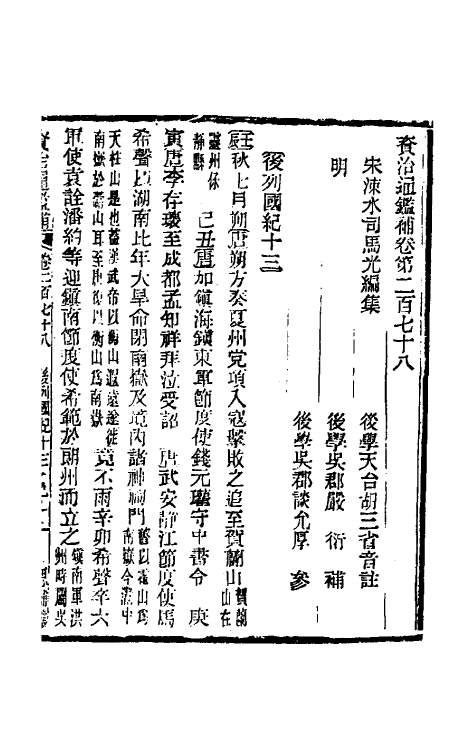 資治通鑑補卷第二百七十八
朱涑水司馬光編集
後學天台胡三省音註
明
後學吳郡嚴衍補
後學吳郡談允厚參
後列國紀十三
壬辰秋七月朔唐朔方奏夏州党項入寇擊敗之追至賀蘭山賀蘭山在
靈州保靜縣己丑唐加鎮海鎮東軍節度使錢元瓘守中書令庚
寅唐李存瓌至成都孟知祥拜泣受詔唐武安靜江節度使馬
希聲以湖南比年大旱命閉南嶽及境內諸神祠門舊以霍山爲南嶽今灊中
天柱山是也蓋漢武帝以衡山遐遠遂徙南嶽於霍山耳至唐復以衡山爲南嶽竟不雨辛卯希聲卒六
軍使袁詮潘約等迎鎮南節度使希範於朗州而立之鎮南軍洪州時屬吳
資治通鑑補 卷二百七十八 後列國紀十三